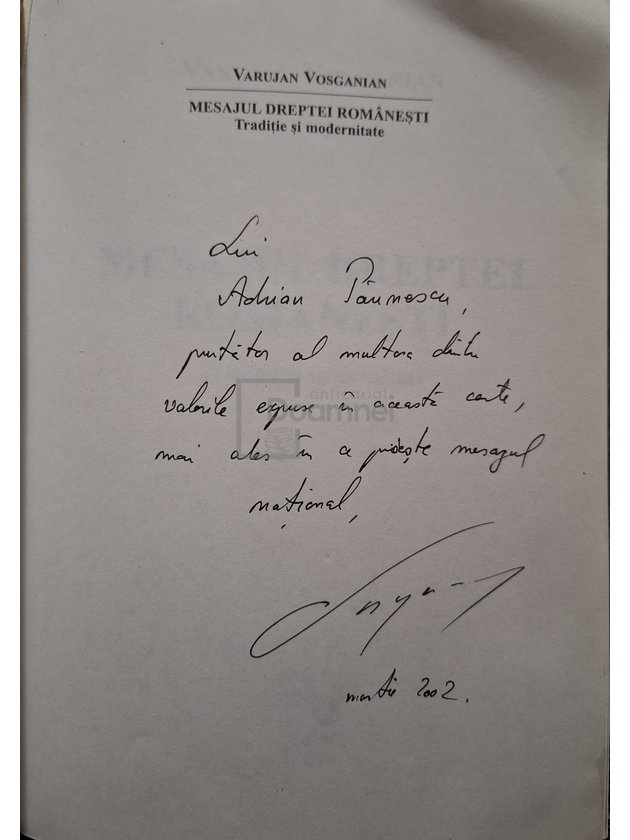 VARUJAN VOSGANIAN
MESAJUL DREPTEI ROMÂNEȘTI
Tradiție și modernitate
Lui
Adrian Păunescu,
purtător al multora dintre
valorile expuse în această carte,
mai ales în ce privește mesajul
național,
martie 2002.
anticariat
Doamnei